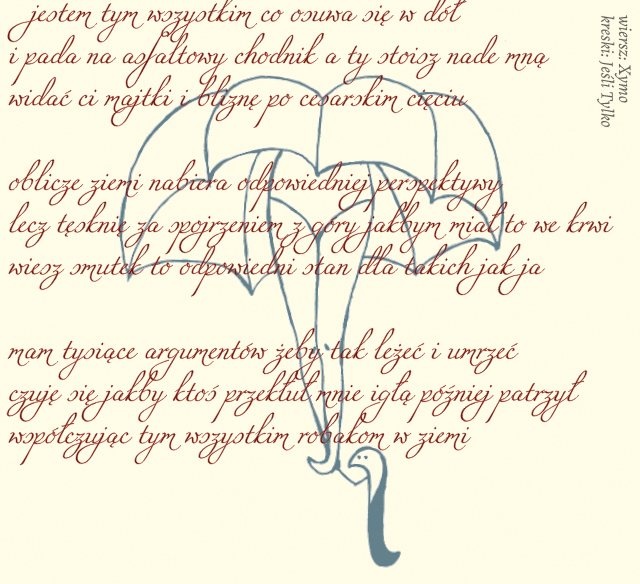 jestem tym wszystkim co osuwa się w dół
i pada na asfaltowy chodnik a ty stoisz nade mną
widać ci majtki i bliznę po cesarskim cięciu
oblicze ziemi nabiera odpowiedniej perspektywy
lecz tęsknię za spojrzeniem z góry jakbym miał to we krwi
wiesz smutek to odpowiedni stan dla takich jak ja
mam tysiące argumentów żeby tak leżeć i umrzeć
czuję się jakby ktoś przekłuł mnie igłą później patrzył
współczując tym wszystkim robakom w ziemi
wiersz: Xymo
kreski: Jeśli Tylko